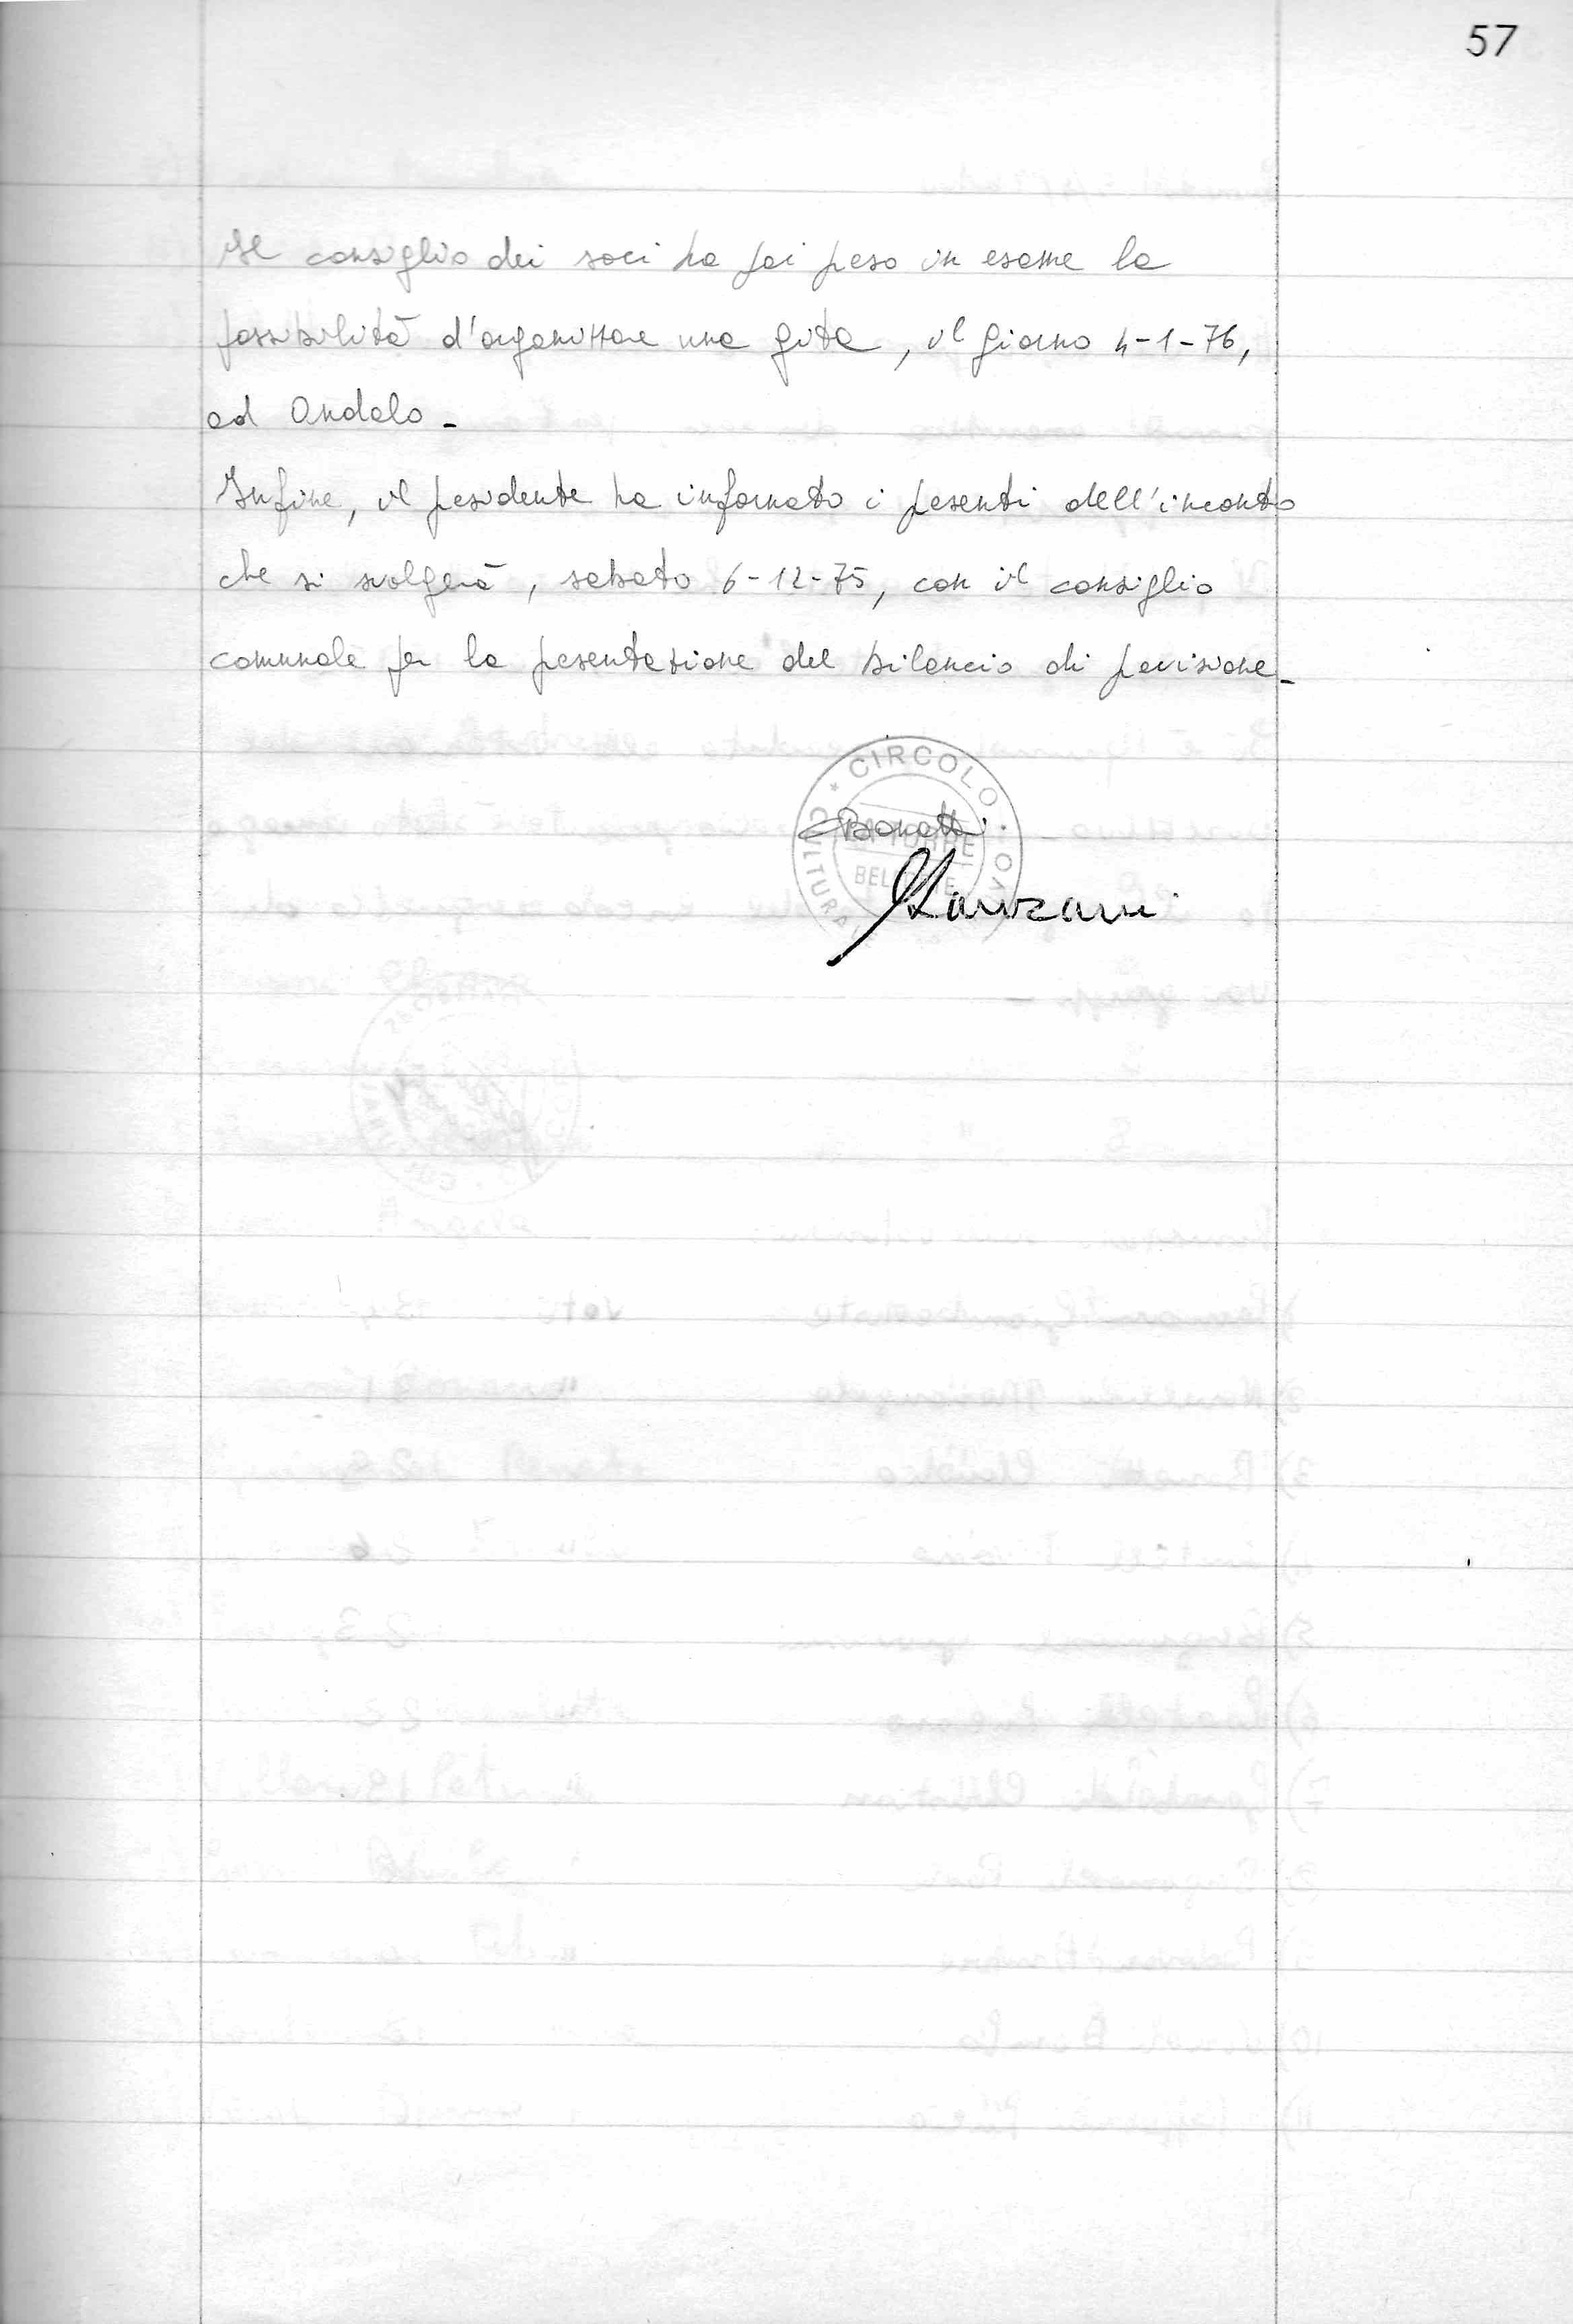 57
Il consiglio dei soci ha poi preso in esame la
possibilità d'organizzare una gita, il giorno 4-1-76,
ad Andalo -
Infine, il presidente ha informato i presenti dell'incontro
che si svolgerà, sabato 6-12-75, con il consiglio
comunale per la presentazione del bilancio di previsione -
CIRCOLO
Bonetti